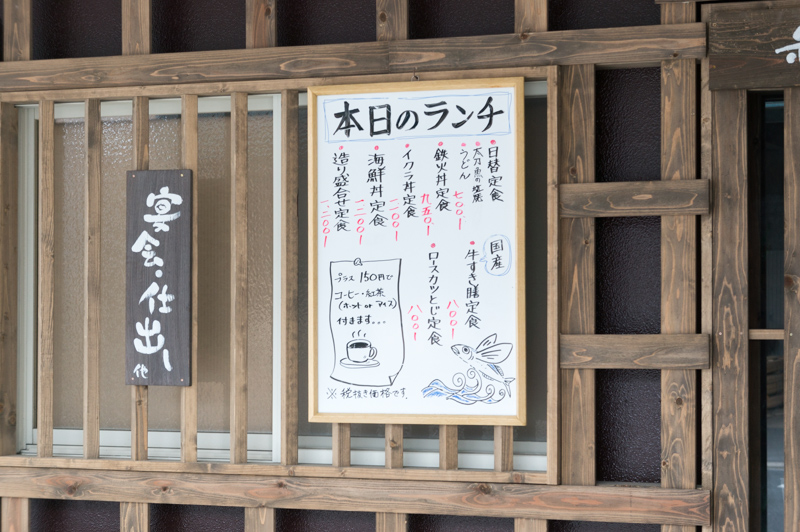 本日のランチ
日替定食
太刀魚の塩焼
うどん
七〇〇-
鉄火丼定食
九五〇-
イクラ丼定食
一一〇〇-
海鮮丼定食
一二〇〇-
造り盛合せ定食
一、二〇〇-
国産
牛すき膳定食
八〇〇-
ロースカツとじ定食
八〇〇-
プラス150円で
コーヒー・紅茶
(ホット or アイス)
付きます...
※税抜き価格です。
宴会・仕出し
他